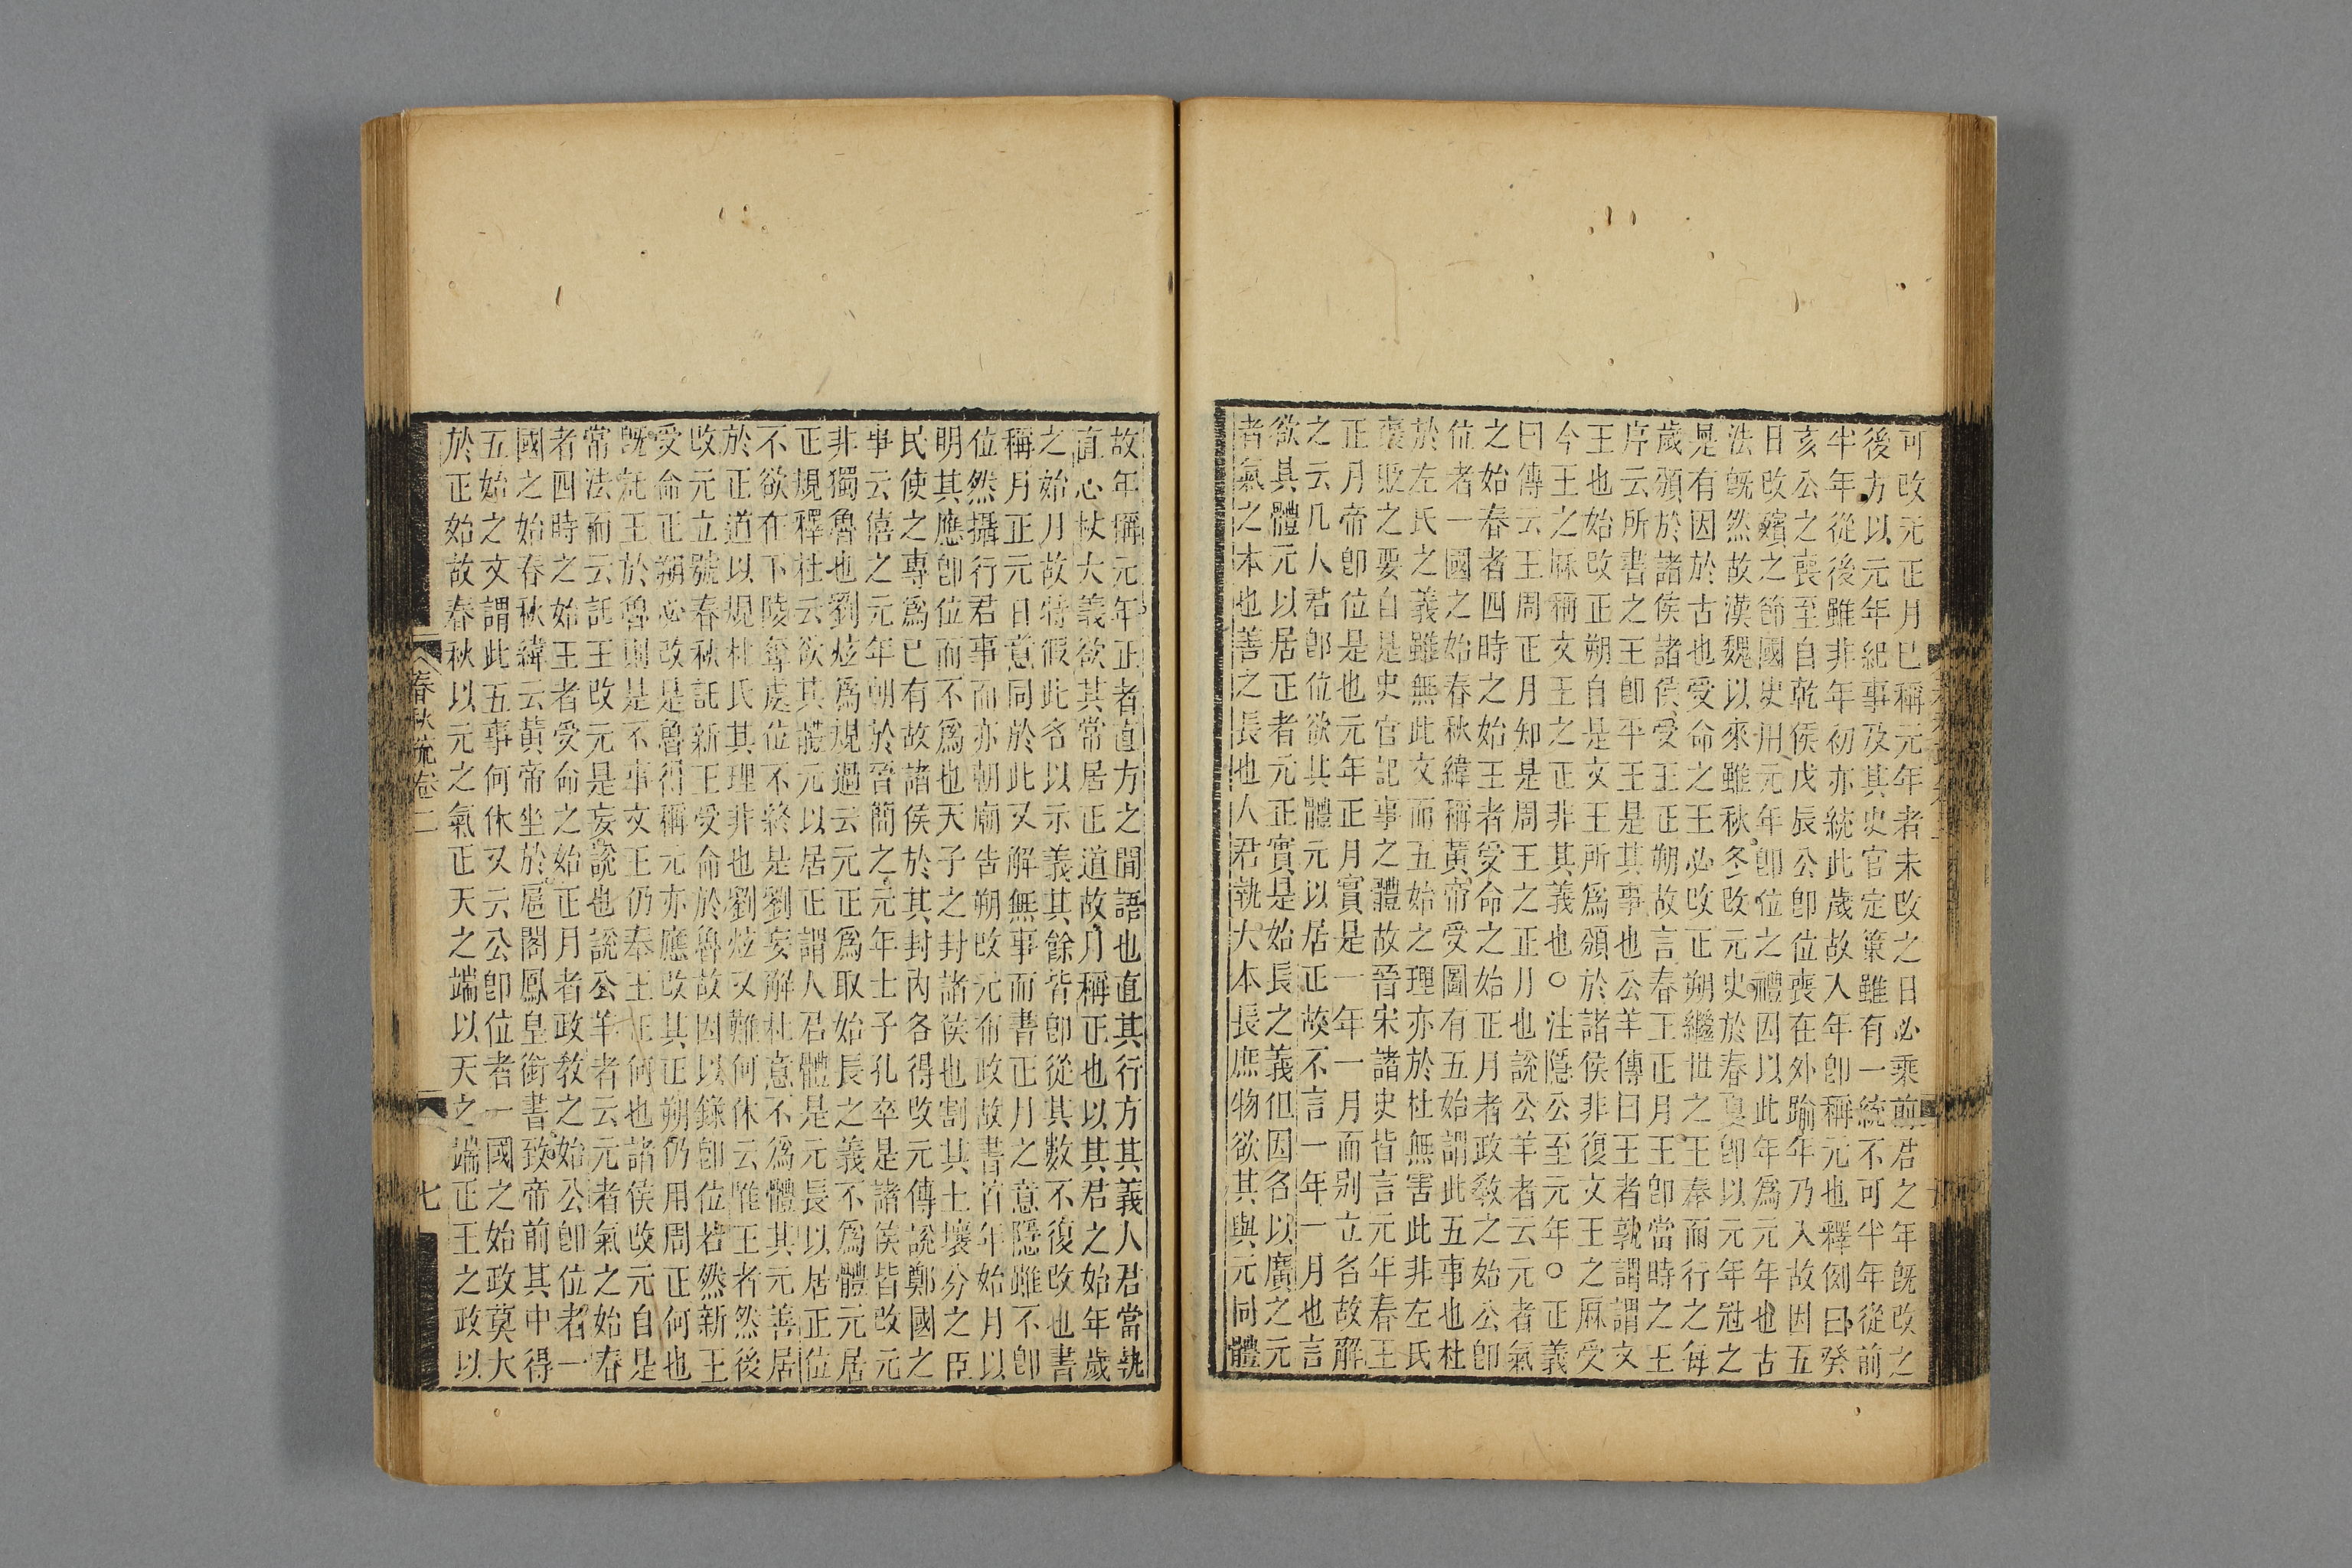 可改元正月已稱元年者未改之日必乘前君之年旣改之
後方以元年紀事及其史官定䇿雖有一統不可半年從前
半年從後雖非年初亦統此歲故入年卽稱元也釋例曰癸
亥公之喪至自乾侯戊辰公卽位喪在外踰年乃入故因五
日改殯之節國史用元年卽位之禮因以此年爲元年也古
法旣然故漢魏以來雖秋冬改元史於春夏卽以元年冠之
是有因於古也受命之王必改正朔繼世之王奉而行之每
歲頒於諸侯諸侯受王正朔故言春王正月王卽當時之王
序云所書之王卽平王是其事也公羊傳曰王者孰謂謂文
王也始改正朔自是文王所爲頒於諸侯非復文王之厤受
今王之厤稱文王之正非其義也○注隱公至元年○正義
曰傳云王周正月知是周王之正月也說公羊者云元者氣
之始春者四時之始王者受命之始正月者政敎之始公卽
位者一國之始春秋緯稱黃帝受圖有五始謂此五事也杜
於左氏之義雖無此文而五始之理亦於杜無害此非左氏
襃貶之要自是史官記事之體故晉宋諸史皆言元年春王
正月帝卽位是也元年正月實是一年一月而别立名故解
之云凡人君卽位欲其體元以居正故不言一年一月也言
欲其體元以居正者元正實是始長之義但因名以廣之元
者氣之本也善之長也人君執大本長庶物欲其與元同體
故年稱元年正者直方之閒語也直其行方其義人君當執
直心杖大義欲其常居正道故月稱正也以其君之始年歲
之始月故特假此名以示義其餘皆卽從其數不復改也書
稱月正元日意同於此又解無事而書正月之意隱雖不卽
位然攝行君事而亦朝廟告朔改元布政故書首年始月以
明其應卽位而不爲也天子之封諸侯也割其土壤分之臣
民使之專爲已有故諸侯於其封內各得改元傳說鄭國之
事云僖之元年朝於晉簡之元年士子孔卒是諸侯皆改元
非獨魯也劉炫爲規過云元正爲取始長之義不爲體元居
正規釋杜云欲其體元以居正謂人君體是元長以居正位
不欲在下陵奪處位不終是劉妄解杜意不爲體其元善居
於正道以規杜氏其理非也劉炫又難何休云惟王者然後
改元立號春秋託新王受命於魯故因以錄卽位若然新王
受命正朔必改是魯得稱元亦應改其正朔仍用周正何也
旣託王於魯則是不事文王仍奉王正何也諸侯改元自是
常法而云託王改元是妄說也說公羊者云元者氣之始春
者四時之始王者受命之始正月者政敎之始公卽位者一
國之始春秋緯云黃帝坐於扈閣鳳皇銜書致帝前其中得
五始之文謂此五事何休又云公卽位者一國之始政莫大
於正始故春秋以元之氣正天之端以天之端正王之政以
春秋疏卷二
七